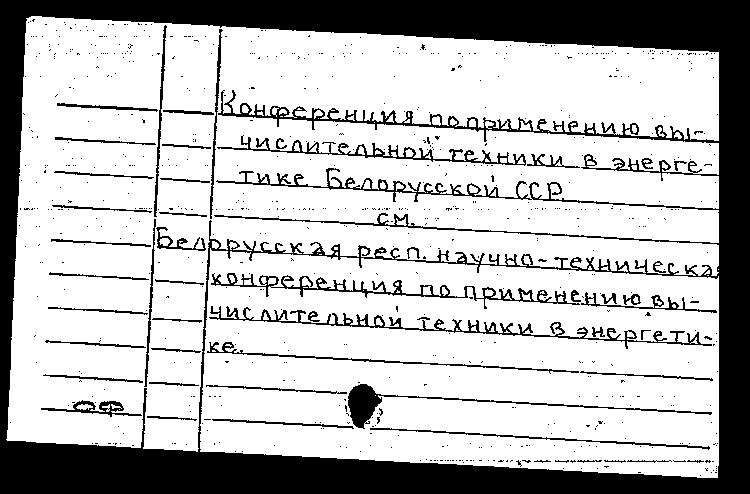 Конференция по применению вы-
числительной техники в энерге-
тике Белорусской ССР.
см.
Белорусская респ. научно-техническая
конференция по применению вы-
числительной техники в энергети-
ке.
ОФ